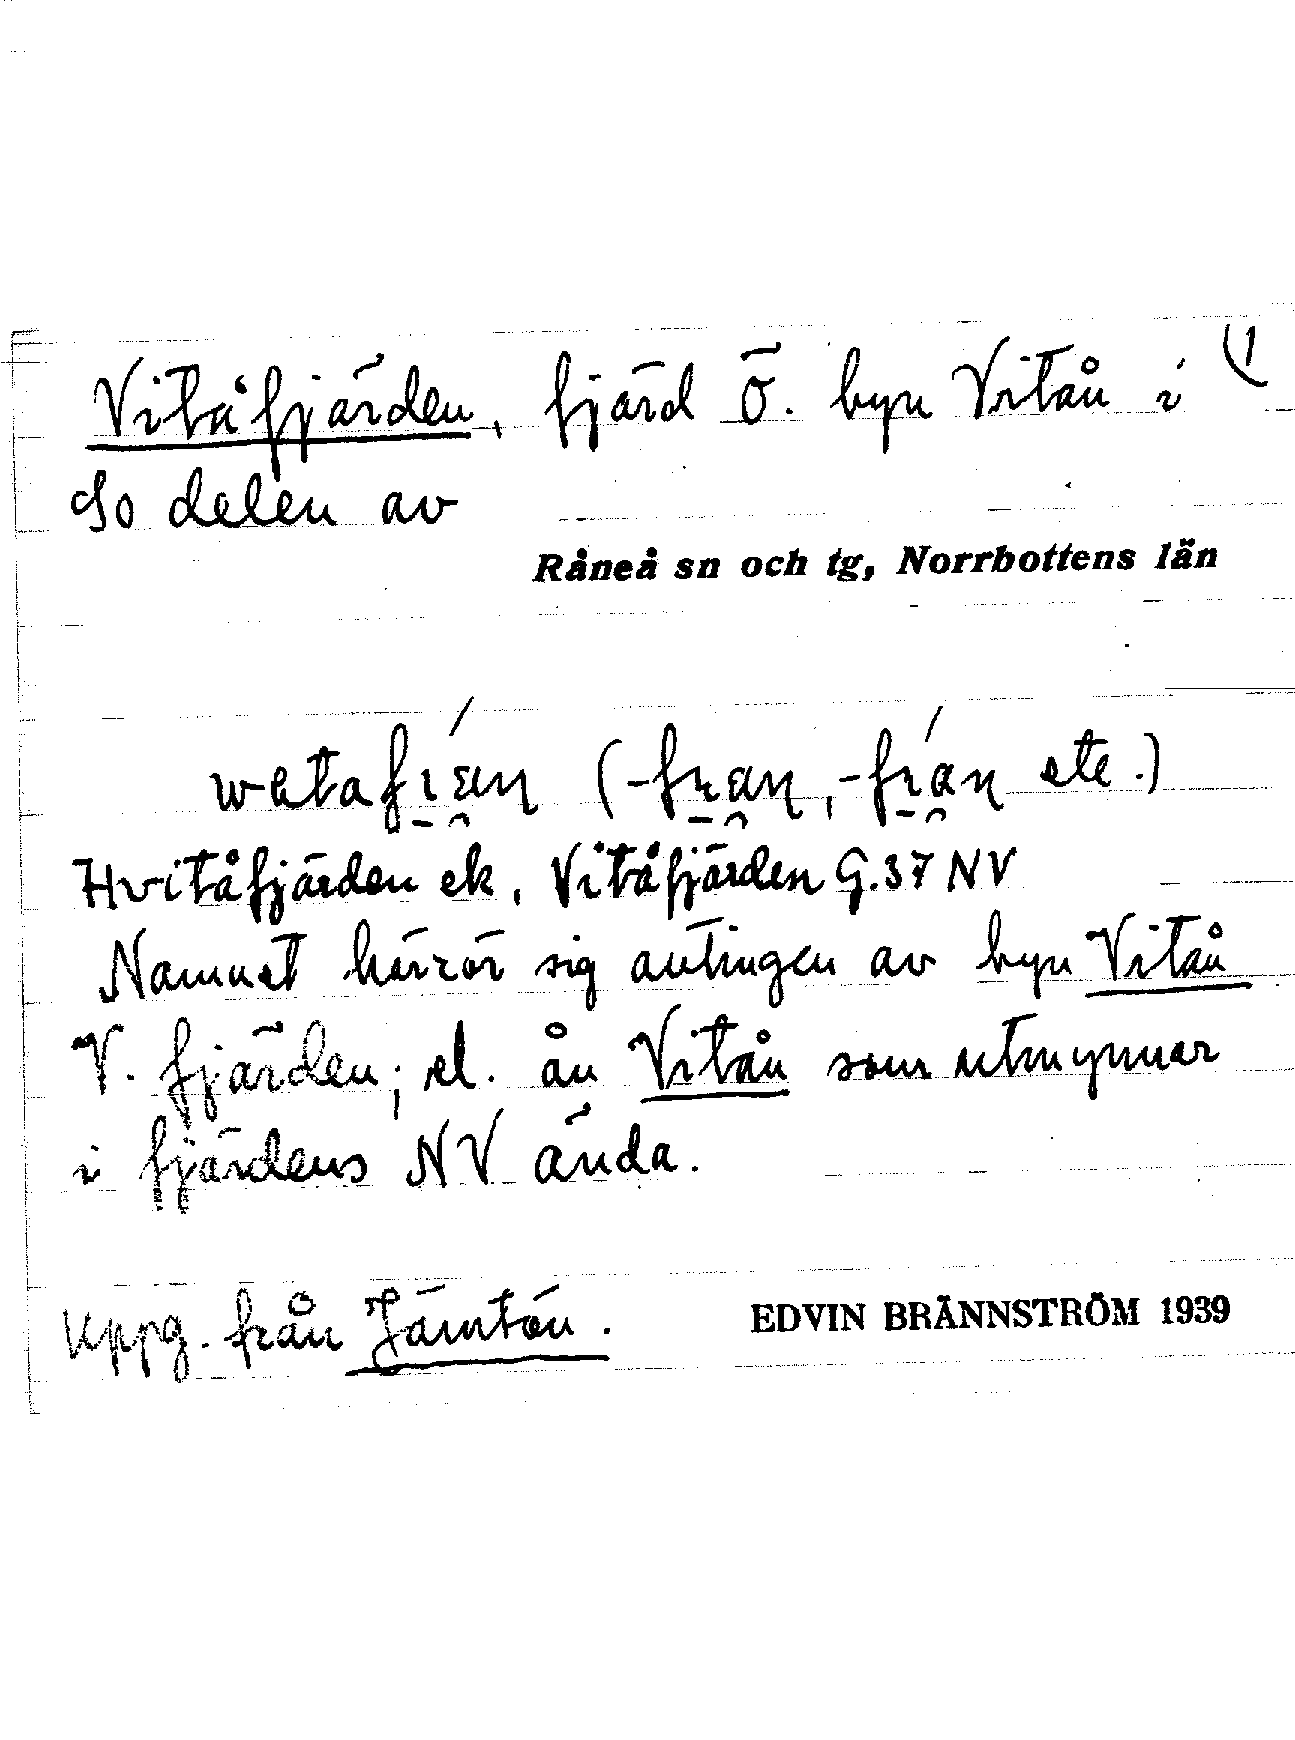 Vitåfjärden, fjärd Ö. byn Vitån i (1
So delen av
Råneå sn och tg, Norrbottens län
Hvitåfjärden ek, Vitåfjärden G.37 NV
Namnet härrör sig antingen av byn Vitån
V. fjärden; el. ån Vitån som utmynnar
i fjärdens NV ända.
Uppg. från Jämtön. EDVIN BRÄNNSTRÖM 1939